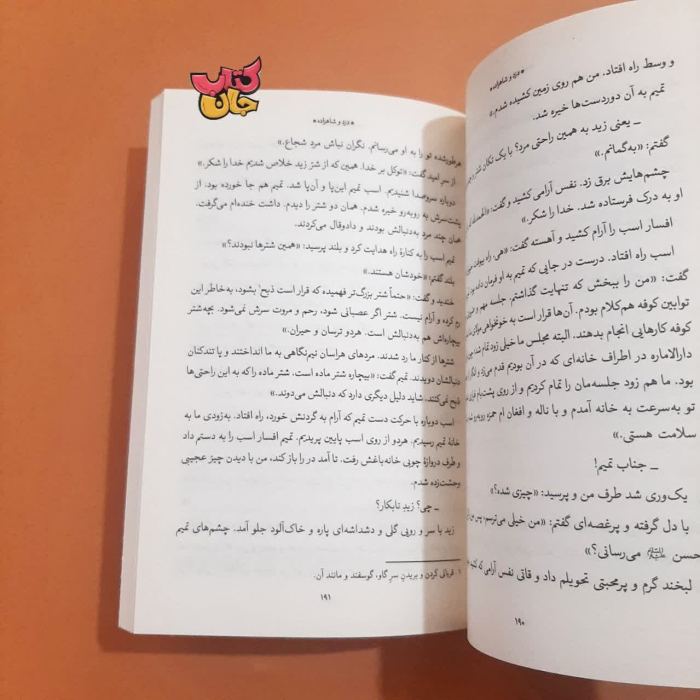 کتاب
جان
* دزد و شاهزاده *
و وسط راه افتاد. من هم روی زمین کشیده شدم.»
تمیم به آن دوردست‌ها خیره شد.
ـ یعنی زید به همین راحتی مرد؟ با یک تکان شتر و
گفتم: «به‌گمانم.»
چشم‌هایش برق زد. نفس آرامی کشید و گفت:
او به درک فرستاده شد. خدا را شکر.»
افسار اسب را آرام کشید و آهسته گفت: «هی، راه بیوفت
اسب راه افتاد. درست در جایی که تمیم به او فرمان داده بود
گفت: «من را ببخش که تنهایت گذاشتم. جلسه مهم و
توابین کوفه هم‌کلام بودم. آن‌ها قرار است به خونخواهی
کوفه کارهایی انجام بدهند. البته مجلس ما خیلی زود تمام شد
دارالاماره در اطراف خانه‌ای که در آن بودیم قدم می‌زد
بود. ما هم زود جلسه‌مان را تمام کردیم و از روی پشت‌بام
تو به‌سرعت به خانه آمدم و با ناله و افغان ام حمزه روبه‌رو شد
سلامت هستی.»
ـ جناب تمیم!
یک‌وری شد طرف من و پرسید: «چیزی شده؟»
با دل گرفته و پرغصه‌ای گفتم: «من خیلی می‌ترسم. پس من
حسن می‌رسانی؟»
لبخند گرم و پرمحبتی تحویلم داد و قاتی نفس آرامی که
۱۹۰
* دزد و شاهزاده *
هرطورشده تو را به او می‌رسانم. نگران نباش مردِ شجاع.»
از سرِ امید گفت: «توکل بر خدا. همین که از شرّ زید خلاص شدیم خدا را شکر.»
دوباره سروصدا شنیدیم. اسب تمیم این‌پا و آن‌پا شد. تمیم هم جا خورده بود. از
پشت‌سرش به روبه‌رو خیره شدم. همان دو شتر را دیدم. داشت خنده‌ام می‌گرفت.
همان چند مرد به‌دنبالش بودند و دادوقال می‌کردند.
تمیم اسب را به کنارهٔ راه هدایت کرد و بلند پرسید: «همین شترها نبودند؟»
بلند گفتم: «خودشان هستند.»
خندید و گفت: «حتماً شتر بزرگ‌تر فهمیده که قرار است ذبح۱ بشود، به‌خاطر این
رم کرده و آرام نیست. شتر اگر عصبانی شود، رحم و مروت سرش نمی‌شود. بچه‌شتر
بیچاره‌اش هم به‌دنبالش است. هردو ترسان و حیران.»
شترها از کنار ما رد شدند. مردهای هراسان نیم‌نگاهی به ما انداختند و پا تندکنان
دنبالشان دویدند. تمیم گفت: «بیچاره شتر ماده است. شتر ماده را که به این راحتی‌ها
ذبح نمی‌کنند. شاید دلیل دیگری دارد که دنبالش می‌دوند.»
اسب دوباره با حرکت دست تمیم که آرام به گردنش خورد، راه افتاد. به‌زودی ما به
خانهٔ تمیم رسیدیم. هردو از روی اسب پایین پریدیم. تمیم افسار اسب را به دستم داد
و طرف دروازهٔ چوبی خانه‌باغش رفت. تا آمد در را باز کند، من با دیدن چیز عجیبی
وحشت‌زده شدم.
ـ چی؟ زیدِ نابکار؟
زید با سر و رویی گلی و دشداشه‌ای پاره و خاک‌آلود جلو آمد. چشم‌های تمیم
۱. قربانی کردن و بریدنِ سرِ گاو، گوسفند و مانند آن.
۱۹۱